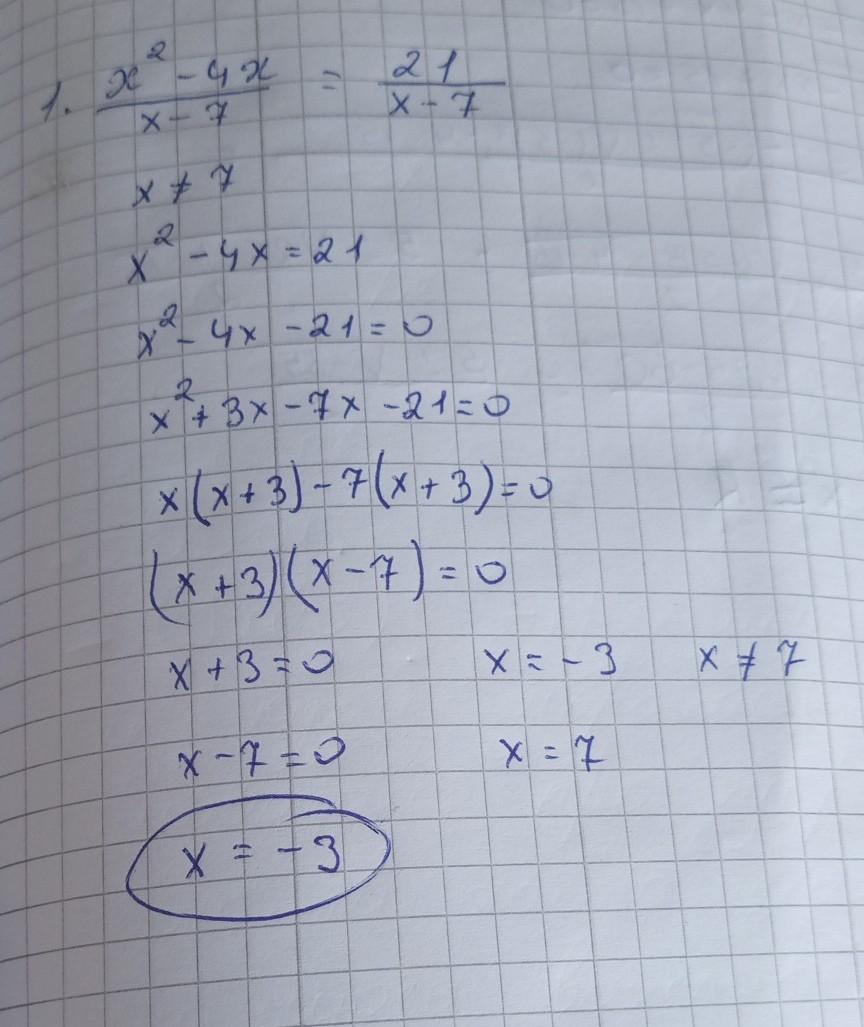 1. \frac{x^2 - 4x}{x - 7} = \frac{21}{x - 7}
x ≠ 7
x² - 4x = 21
x² - 4x - 21 = 0
x² + 3x - 7x - 21 = 0
x(x + 3) - 7(x + 3) = 0
(x + 3)(x - 7) = 0
x + 3 = 0 x = -3 x ≠ 7
x - 7 = 0 x = 7
x = -3